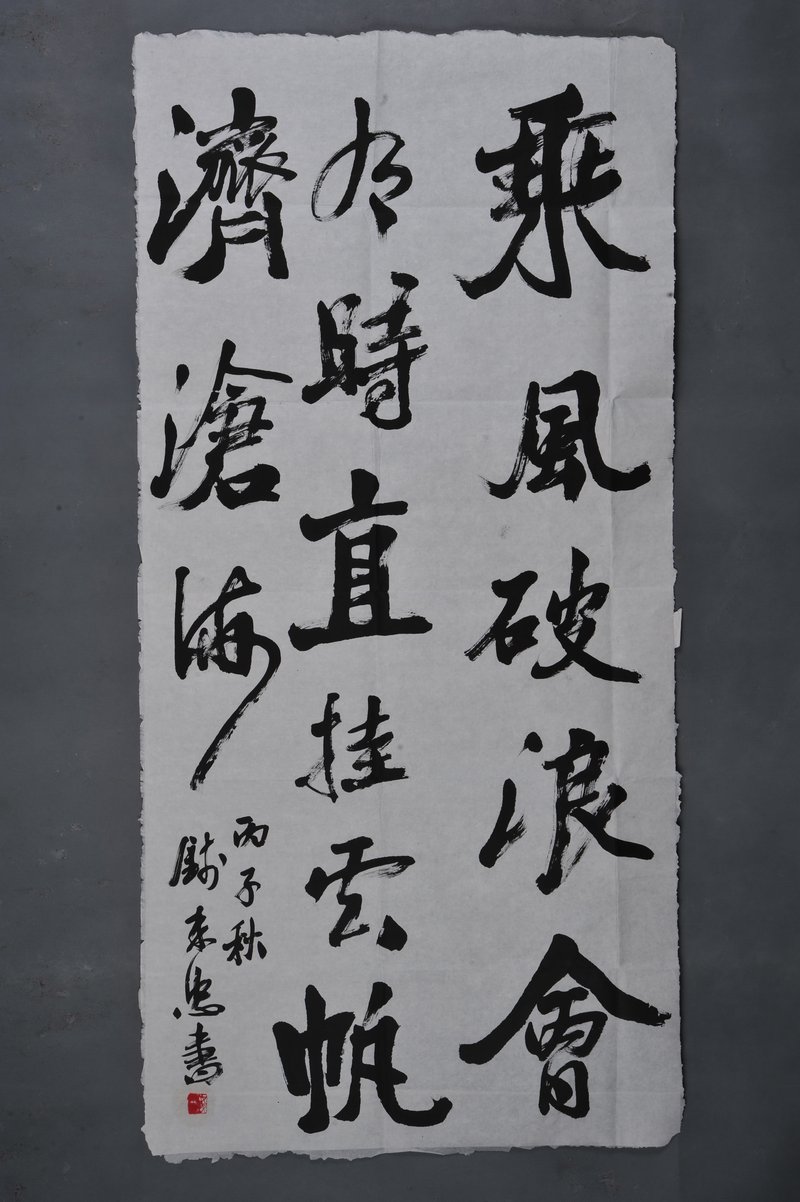 乘風破浪會
有時直挂雲帆
濟滄海
丙子秋
錢來忠書